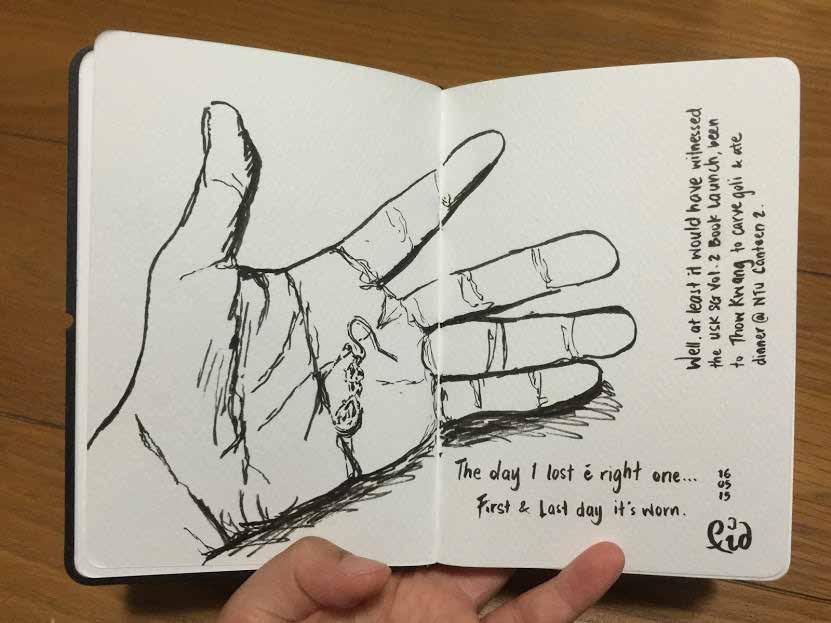 Well, at least it would have witnessed
the USK SG Vol. 2 Book Launch, been
to Thow Kwang to carve goli & ate
dinner @ NTU Canteen 2.
The day I lost ē right one...
First & Last day it's worn.
16
05
15